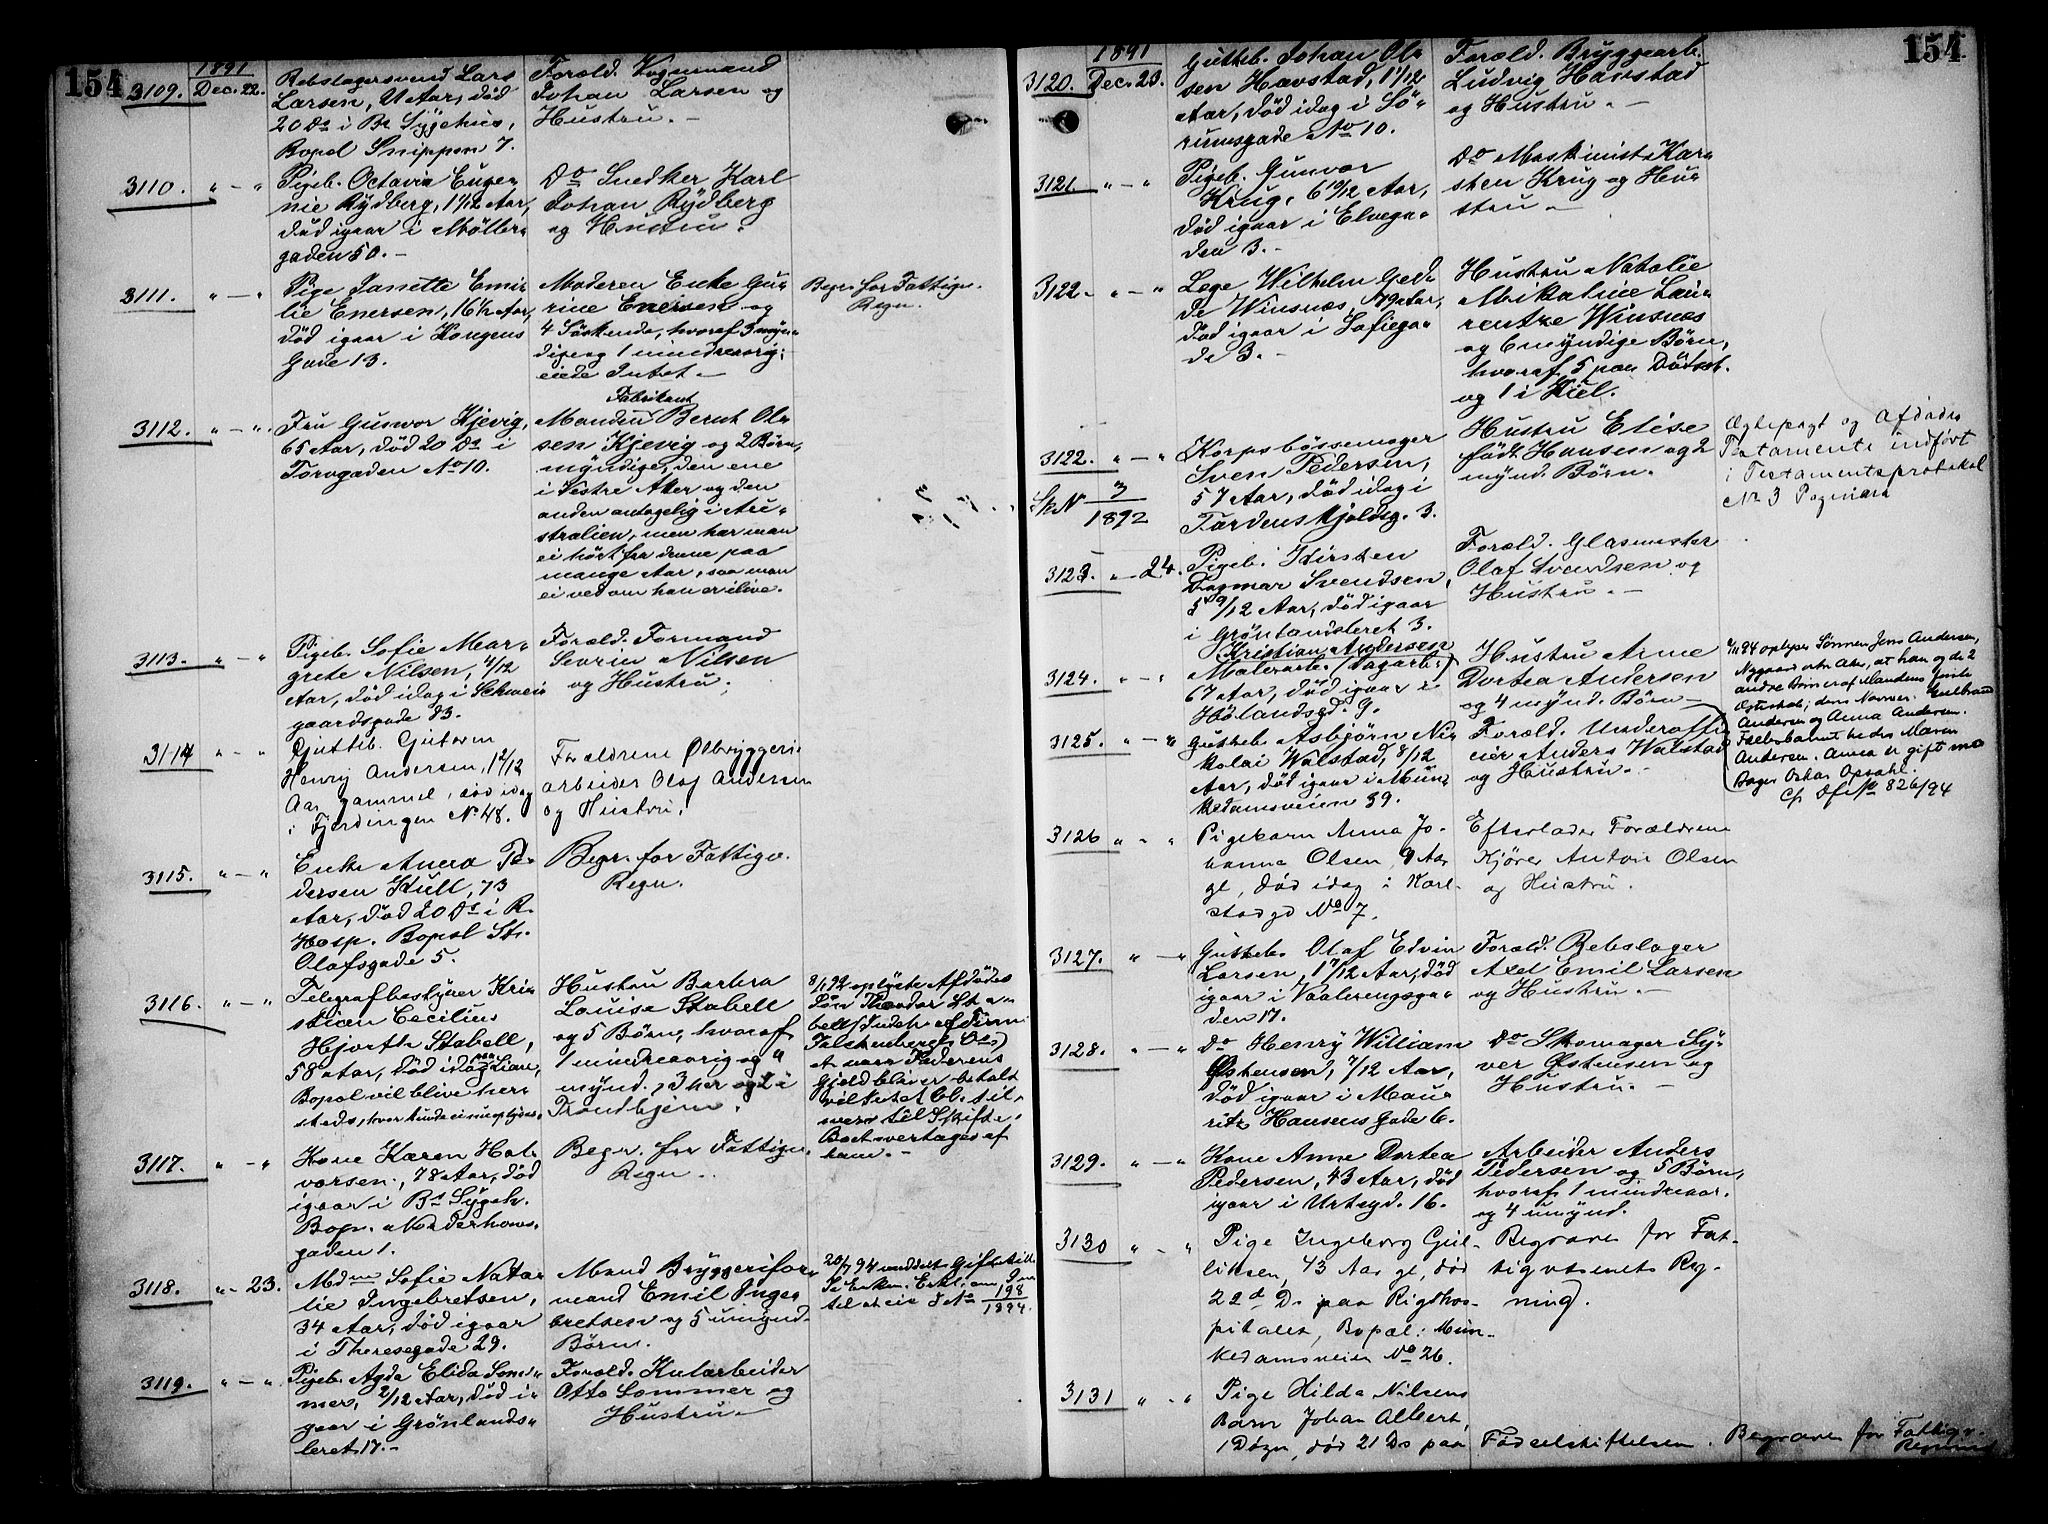 154
1891
3109. Dec. 22.
Rebslagersvend Lars
Larsen, 21 Aar, död
20 Ds i By Sygehus,
Bopæl Snippen 7.
Foræld. Vognmand
Johan Larsen og
Hustru. –
3110. " – "
Pigeb. Octavia Euge-
nie Rydberg, 1 9/12 Aar,
död igaar i Möller-
gaden 50. –
Do Snedker Karl
Johan Rydberg
og Hustru.
3111. " – "
Pige Janette Emi-
lie Enersen, 16 1/2 Aar,
död igaar i Kongens
Gade 13.
Moderen Enke Gu-
rine Enersen og
4 Söskende, hvoraf 3 myn-
dige og 1 mindreaarig;
eiede Intet. –
Begr. for Fattigv.
Regn.
3112. " – "
Fru Gunvor Kjevig,
65 Aar, död 20 Ds i
Torvgaden No 10.
Fabrikant
Manden Bernt Ol-
sen Kjevig og 2 Börn,
myndige, den ene
i Vestre Aker og den
anden antagelig i Au-
stralien, men har man
ei hört fra denne paa
mange Aar, saa man
ei ved om han er ilive.
3113. " – "
Pigeb. Sofie Mar-
grete Nilsen, 4/12
Aar, död idag i Schwei-
gaardsgade 83.
Foræld. Formand
Severin Nilsen
og Hustru.
3114 " – "
Gutteb. Gutorm
Henry Andersen, 1 2/12
Aar gammel, död idag
i Fjerdingen No 48.
Forældrene Ølbryggeri-
arbeider Olaf Andersen
og Hustru.
3115. " – "
Enke Anna Pe-
dersen Hull, 73
Aar, död 20 Ds i R.
Hosp. Bopæl St.
Olafsgade 5.
Begr. for Fattigv.
Regn.
3116. " – "
Telegrafbestyrer Kri-
stian Cecilius
Hjorth Stabell,
58 Aar, död idag paa Lian,
Bopæl vil blive her-
steds, hvor kunde ei nu oplyses.
Hustru Barbra
Louise Stabell
og 5 Börn, hvoraf
1 mindreaarig og 4
mynd., 3 her og 2 i
Trondhjem.
8/1 92 oplyste Afdödes
Sön Theodor Sta-
bell (Indeh. af Firm.
Falckenberg &amp; Os)
at naar Faderens
Gjæld bliver betalt
vil Intet bl. til-
overs til Skifte.
Boet overtages af
ham. –
3117. " – "
Kone Karen Hal-
vorsen, 78 Aar, död
igaar i Bs Sygeh.
Bop. Norderhovs-
gaden 1.
Begr. for Fattigv.
Regn.
3118. " – 23.
Mdm Sofie Nata-
lie Ingebretsen,
34 Aar, död igaar
i Theresegade 29.
Mand Bryggerifor-
mand Emil Inge-
bretsen og 5 umynd.
Börn.
20/7 94 meddelt Giftetill.
198
1894.
3119. " – "
Pigeb. Agda Elida Som-
mer, 2/12 Aar, död i-
gaar i Grönlands-
leret 17. –
Foræld. Kularbeider
Otto Sommer og
Hustru. –
154
1891
3120. Dec. 23.
Gutteb. Johan Ol-
sen Havstad, 1 1/12
Aar, död idag i Sö-
rumsgade No 10.
Foræld. Bryggearb.
Ludvig Havstad
og Hustru. –
3121. " – "
Pigeb. Gunvor
Krug, 6 10/12 Aar,
död igaar i Elvega-
den 3. –
Do Maskinist Kar-
sten Krug og Hu-
stru. –
3122. " – "
Læge Wilhelm Gjed-
de Winsnæs, 79 Aar,
död igaar i Sofiega-
de 3. –
Hustru Natalie
Mikaline Lau-
rentze Winsnæs
og 6 myndige Börn,
hvoraf 5 paa Dödsst.
og 1 i Kiel.
3122. " – "
Sk N 3/1892
Korpsbössemager
Sven Pedersen,
57 Aar, död idag i
Tordenskjoldsg. 3.
Hustru Elise
födt Hansen og 2
mynd. Börn.
Ægtepagt og Afdödes
Testamente indfört
i Testamentsprotokol
No 3 Pagina
3123. " – 24.
Pigeb. Kirsten
Dagmar Svendsen,
5 9/12 Aar, död igaar
i Grönlandsleret 3.
Foræld. Glasmester
Olaf Svendsen og
Hustru. –
3124. " – "
Kristian Andersen
Malerarb. (Dagarb.)
67 Aar, död igaar i
Hölandsgd. 9.
Hustru Anne
Dortea Andersen
og 4 mynd. Börn –
94 oplyser Sönnen Jens Andersen,
at han og de 2
andre Börn er af Mandens förste
Ægteskab; dens Navner: Gulbrand
Andersen og Anna Andersen.
Fællesbarnet hedder Maren
Andersen. Anna er gift m.
Bager Oskar Opsahl.
Cfr. Df. No 826/94
3125. " – "
Gutteb. Asbjörn Ni-
kolai Walstad, 8/12
Aar, död igaar i Mun-
kedamsveien 39.
Foræld. Underoffi-
cier Anders Walstad
og Hustru. –
3126 " – "
Pigebarn Anna Jo-
hanna Olsen, 9 Aar
gl., död idag i Karl-
stadgd No 7.
Efterlader Forældrene
Kjörer Anton Olsen
og Hustru.
3127. " – "
Gutteb. Olaf Edvin
Larsen, 1 7/12 Aar, död
igaar i Vaalerengsga-
den 17.
Foræld. Rebslager
Axel Emil Larsen
og Hustru. –
3128. " – "
Do Henry William
Østensen, 7/12 Aar,
död igaar i Mau-
ritz Hansens Gade 6.
Do Skomager Sy-
ver Østensen og
Hustru. –
3129. " – "
Kone Anne Dortea
Pedersen, 43 Aar, död
igaar i Urtegd. 16.
Arbeider Anders
Pedersen og 5 Börn,
hvoraf 1 mindreaar.
og 4 umynd.
3130 " – "
Pige Ingeborg Gul-
liksen, 43 Aar gl., död
22d Ds paa Rigshos-
pitalet, Bopæl: Mun-
kedamsveien No 26.
Begraves for Fat-
tigvæsenets Reg-
ning.
3131 " – "
Pige Hilda Nilsens
Barn Johan Albert,
1 Dögn, död 21 Ds paa Födselsstiftelsen. Begraves for Fattigv.
Regning